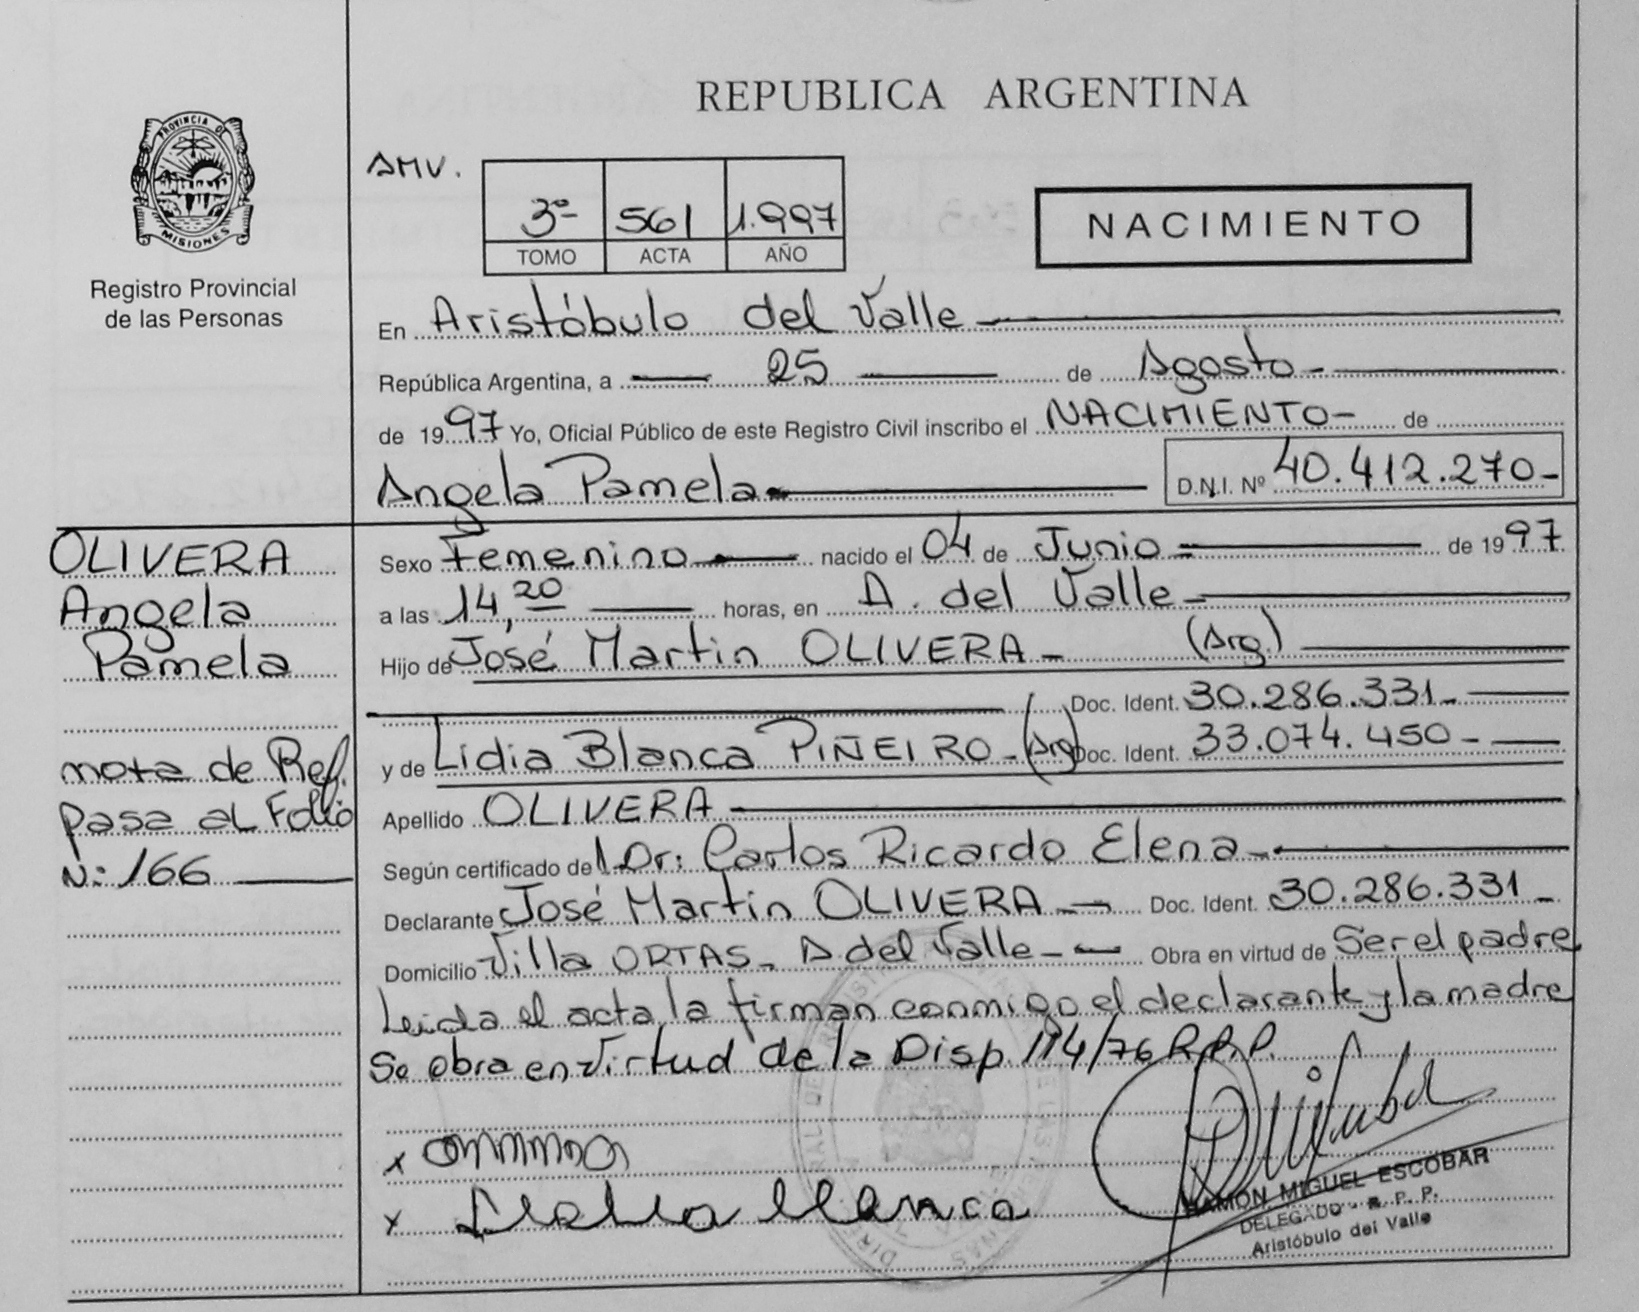 REPUBLICA ARGENTINA
PROVINCIA DE
MISIONES
Registro Provincial
de las Personas
AMV.
3º- 561 1.997
TOMO ACTA AÑO
NACIMIENTO
En Aristóbulo del Valle
República Argentina, a 25 de Agosto-
de 1997 Yo, Oficial Público de este Registro Civil inscribo el NACIMIENTO- de
Angela Pamela D.N.I. Nº 40.412.270-
OLIVERA
Angela
Pamela
nota de Ref.
pasa al Folio
N: 166
Sexo Femenino nacido el 04 de Junio de 1997
a las 14,20 horas, en A. del Valle
Hijo de José Martin OLIVERA- (Arg.)
Doc. Ident. 30.286.331-
y de Lidia Blanca PIÑEIRO-(Arg) Doc. Ident. 33.074.450-
Apellido OLIVERA
Según certificado del Dr: Carlos Ricardo Elena
Declarante José Martin OLIVERA Doc. Ident. 30.286.331-
Domicilio Villa ORTAS- A del Valle- Obra en virtud de Ser el padre
Leida el acta, la firman conmigo el declarante y la madre
Se obra en virtud de la Disp. 114/76 R.P.P.
x
x Blanca
RAMÓN MIGUEL ESCOBAR
DELEGADO - R. P. P.
Aristóbulo del Valle